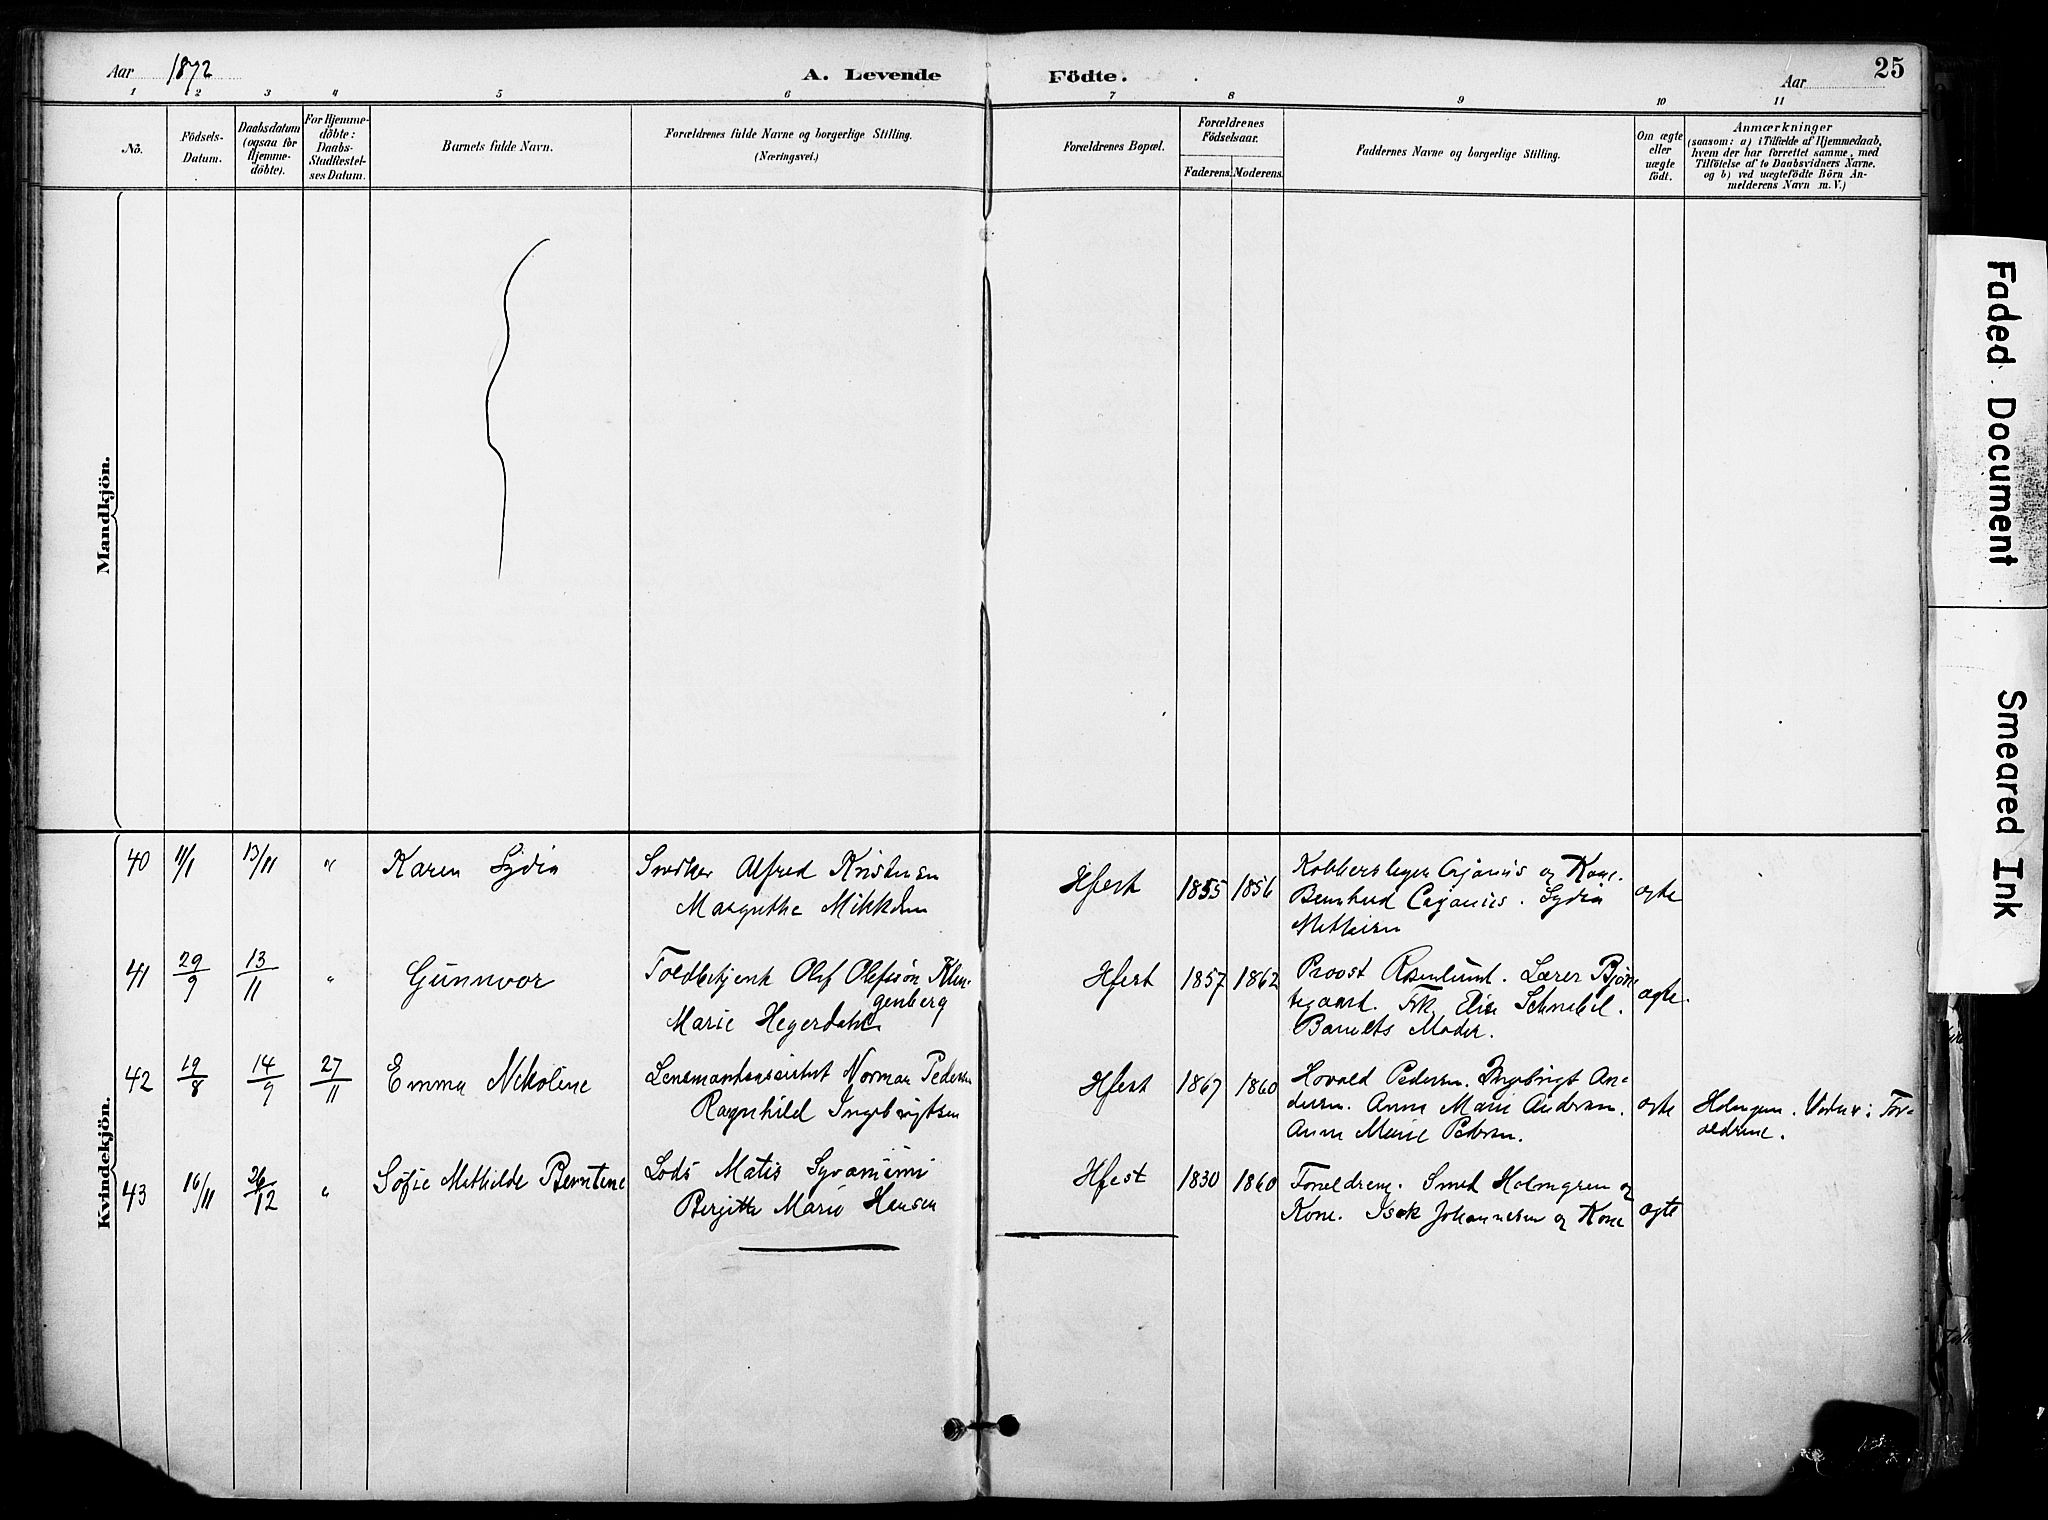 Aar 1892
A. Levende Födte.
Aar
25
1 2 3 4 5 6 7 8 9 10 11
No.
Födsels-Datum.
Daabsdatum (ogsaa for Hjemmedöbte).
For Hjemmedöbte: Daabs-Stadfæstelses Datum.
Barnets fulde Navn.
Forældrenes fulde Navne og borgerlige Stilling.
(Næringsvei.)
Forældrenes Bopæl.
Forældrenes Födselsaar.
Faderens. Moderens.
Faddernes Navne og borgerlige Stilling.
Om ægte eller uægte födt.
Anmærkninger
(saasom: a) i Tilfælde af Hjemmedaab,
hvem der har forrettet samme, med
Tilföielse af to Daabsvidners Navne.
og b) ved uægtefödte Börn An-
melderens Navn m. V.)
Mandkjön.
Kvindekjön.
40 11/1 13/11 " Karen Lydia
Snedker Alfred Kristensen
Margrethe Mikkelsen
Hfest 1855 1856
og Kone.
Lydia
Mathisen
ægte
41 29/9 13/11 " Gunnvor
Toldbetjent Olaf Olafssön Klin-
genberg
Marie Hegerdahl
Hfest 1857 1862
Provst Rosenlund. Lærer
Frk. Elise Schnebel.
Barnets Moder.
ægte.
42 19/8 14/9 27/11 Emma Nikoline
Lensmandsassistent Norman Pedersen
Ragnhild Ingebrigtsen
Hfest 1867 1860
Hovald Pedersen. Ingebrigt An-
dersen. Anne Marie Andersen.
Anne Marie Pedersen.
ægte
Holmgren. Vidner: For-
ældrene.
43 16/11 26/12 " Sofie Mathilde Berntine
Lods Matis
Birgitte Marie Hansen
Hfest 1830 1860
Forældrene. Smed Holmgren og
Kone. Isak Johannesen og Kone
ægte
Faded Document
Smeared Ink